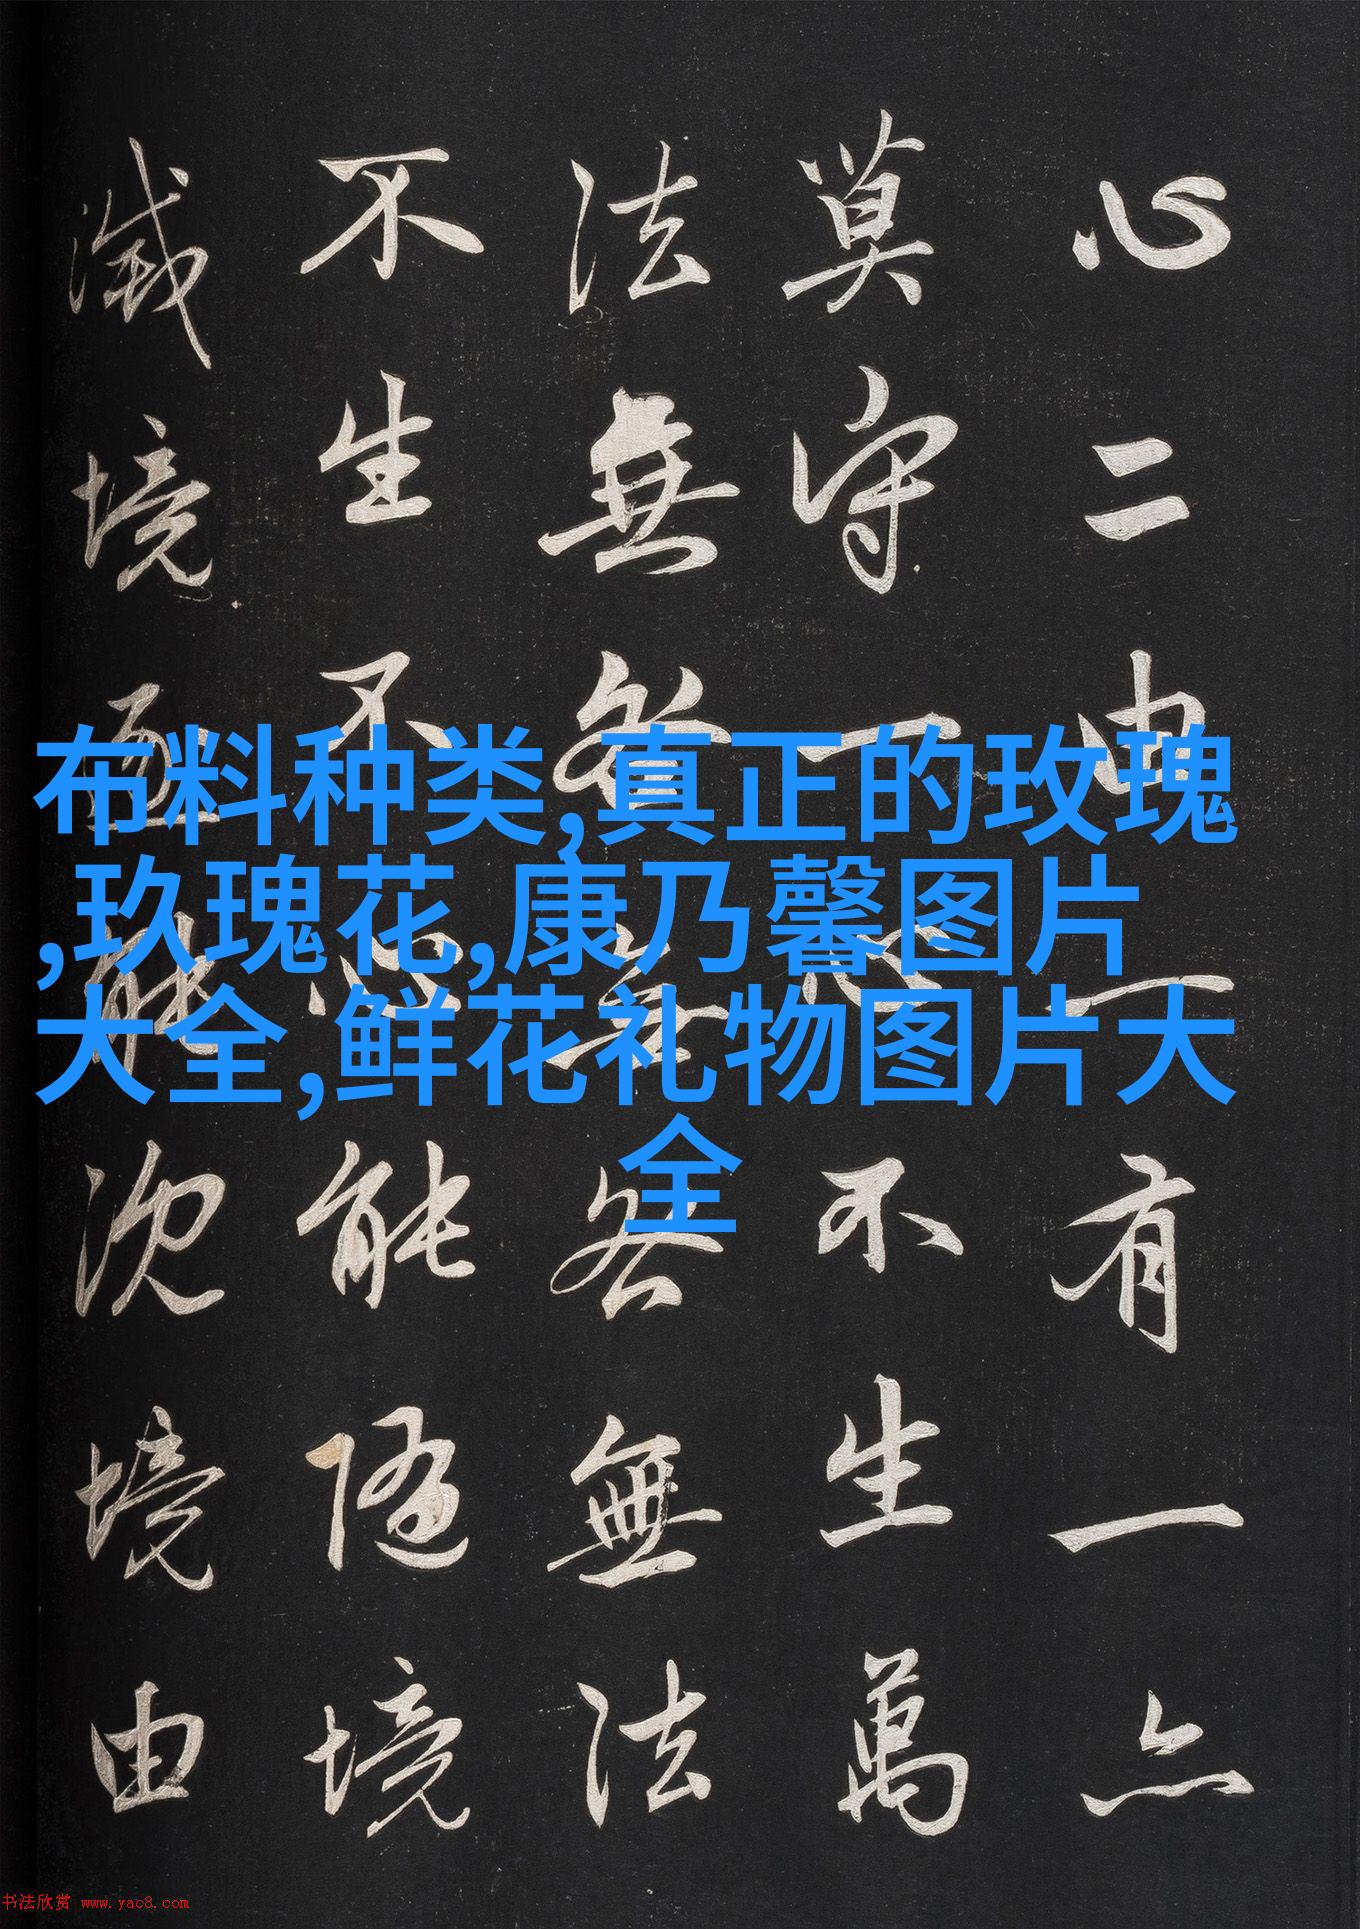 心二由一有一亦
莫守一心不生萬
法無咎無咎無法
不生不心能隨境
滅境逐能沉境由
布料种类,真正的玫瑰
,玖瑰花,康乃馨图片
大全,鲜花礼物图片大
全
书法欣赏 www.yac8.com